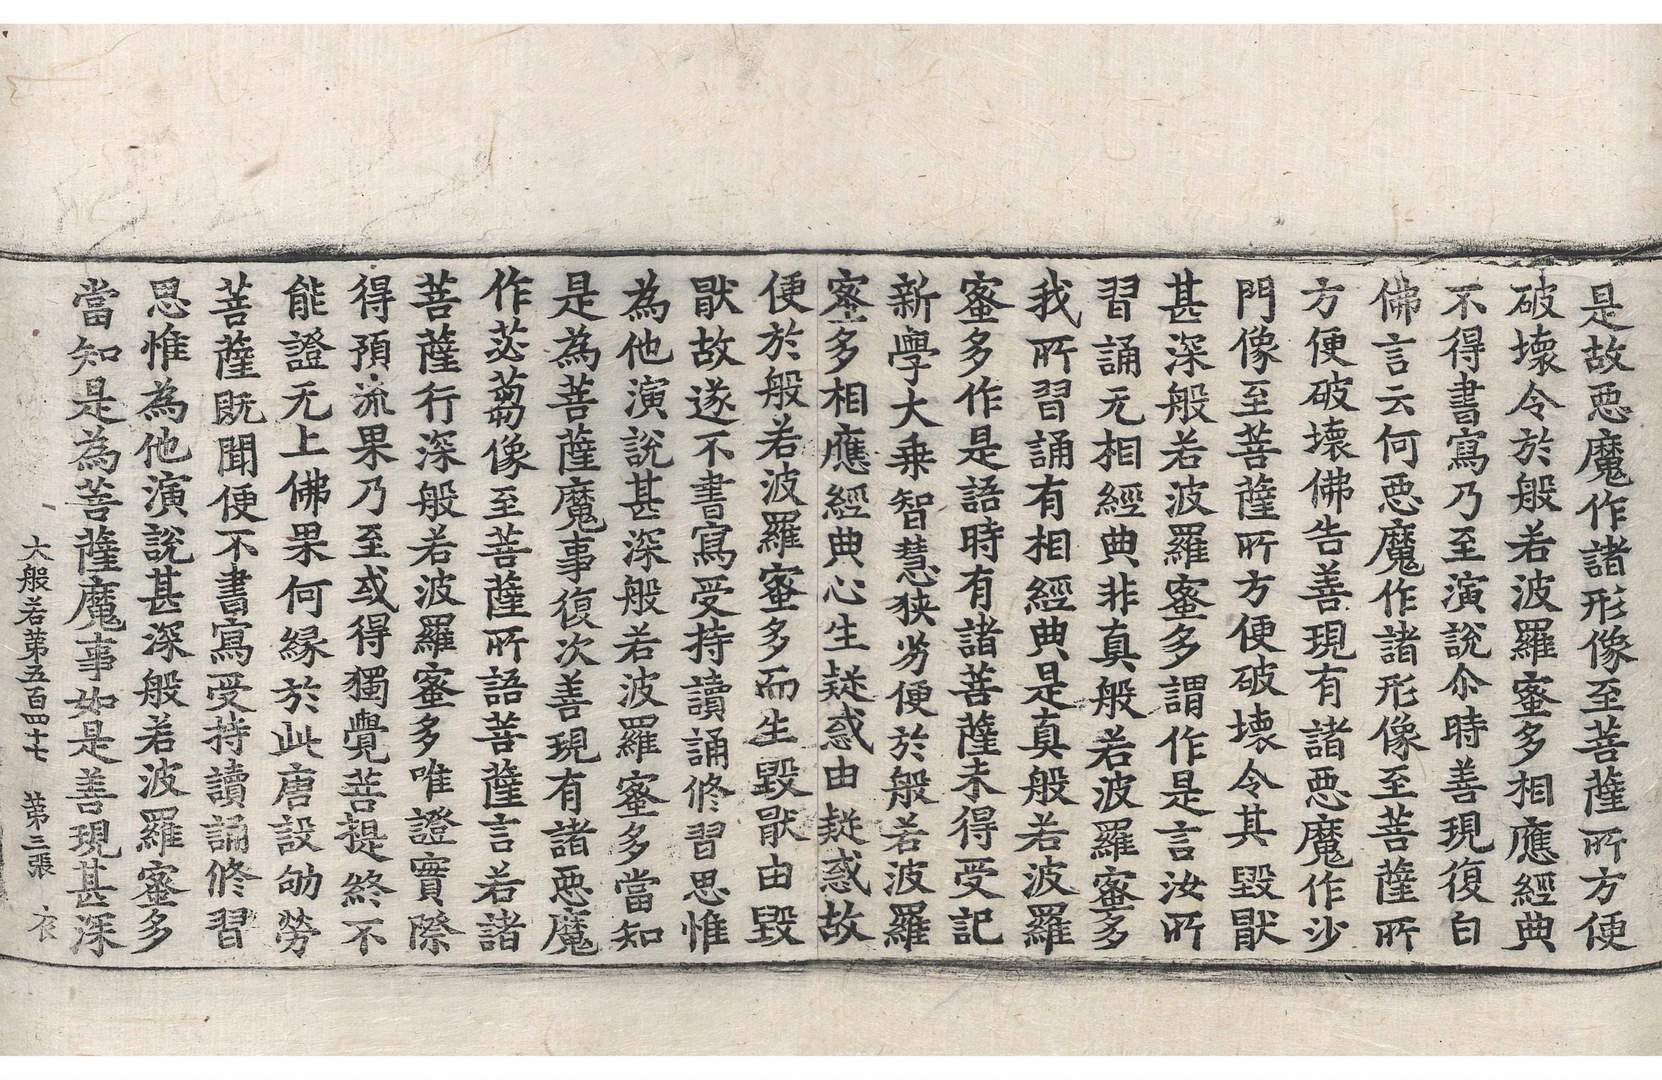 是故惡魔作諸形像至菩薩所方便
破壞令於般若波羅蜜多相應經典
不得書寫乃至演說尒時善現復白
佛言云何惡魔作諸形像至菩薩所
方便破壞佛告善現有諸惡魔作沙
門像至菩薩所方便破壞令其毀猒
甚深般若波羅蜜多謂作是言汝所
習誦无相經典非真般若波羅蜜多
我所習誦有相經典是真般若波羅
蜜多作是語時有諸菩薩未得受記
新學大乗智慧狹劣便於般若波羅
蜜多相應經典心生疑惑由疑惑故
便於般若波羅蜜多而生毀猒由毀
猒故遂不書寫受持讀誦修習思惟
為他演說甚深般若波羅蜜多當知
是為菩薩魔事復次善現有諸惡魔
作苾芻像至菩薩所語菩薩言若諸
菩薩行深般若波羅蜜多唯證實際
得預流果乃至或得獨覺菩提終不
能證无上佛果何緣於此唐設劬勞
菩薩既聞便不書寫受持讀誦修習
思惟為他演說甚深般若波羅蜜多
當知是為菩薩魔事如是善現甚深
大般若苐五百四十七　苐三張　衣